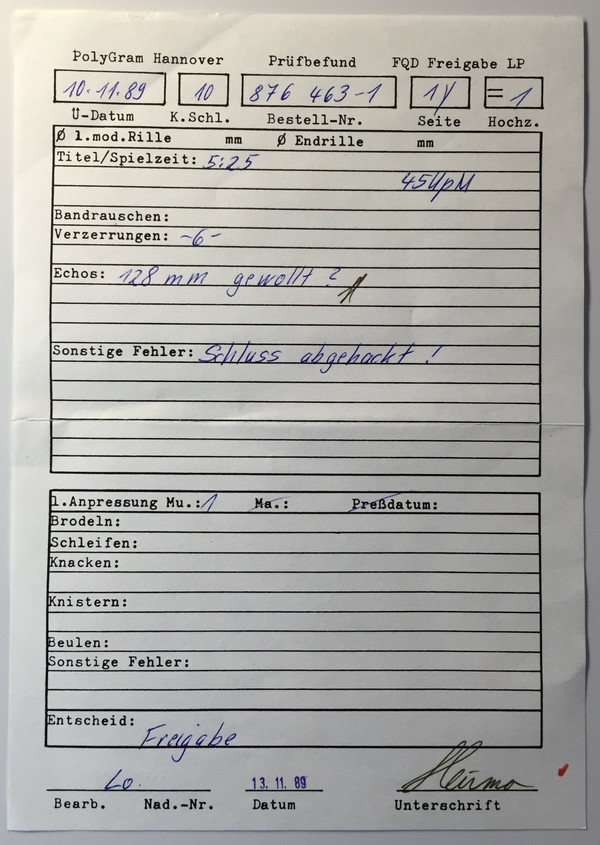 PolyGram Hannover Prüfbefund FQD Freigabe LP
10.11.89 10 876 463-1 1Y = 1
Ü-Datum K.Schl. Bestell-Nr. Seite Hochz.
Ø 1.mod.Rille mm Ø Endrille mm
Titel/Spielzeit: 5:25
45UpM
Bandrauschen:
Verzerrungen: -6-
Echos: 128 mm gewollt?
Sonstige Fehler: Schluss abgehackt!
1.Anpressung Mu.:1 Ma.: Preßdatum:
Brodeln:
Schleifen:
Knacken:
Knistern:
Beulen:
Sonstige Fehler:
Entscheid:
Freigabe
Lo. 13.11.89
Bearb. Nad.-Nr. Datum Unterschrift